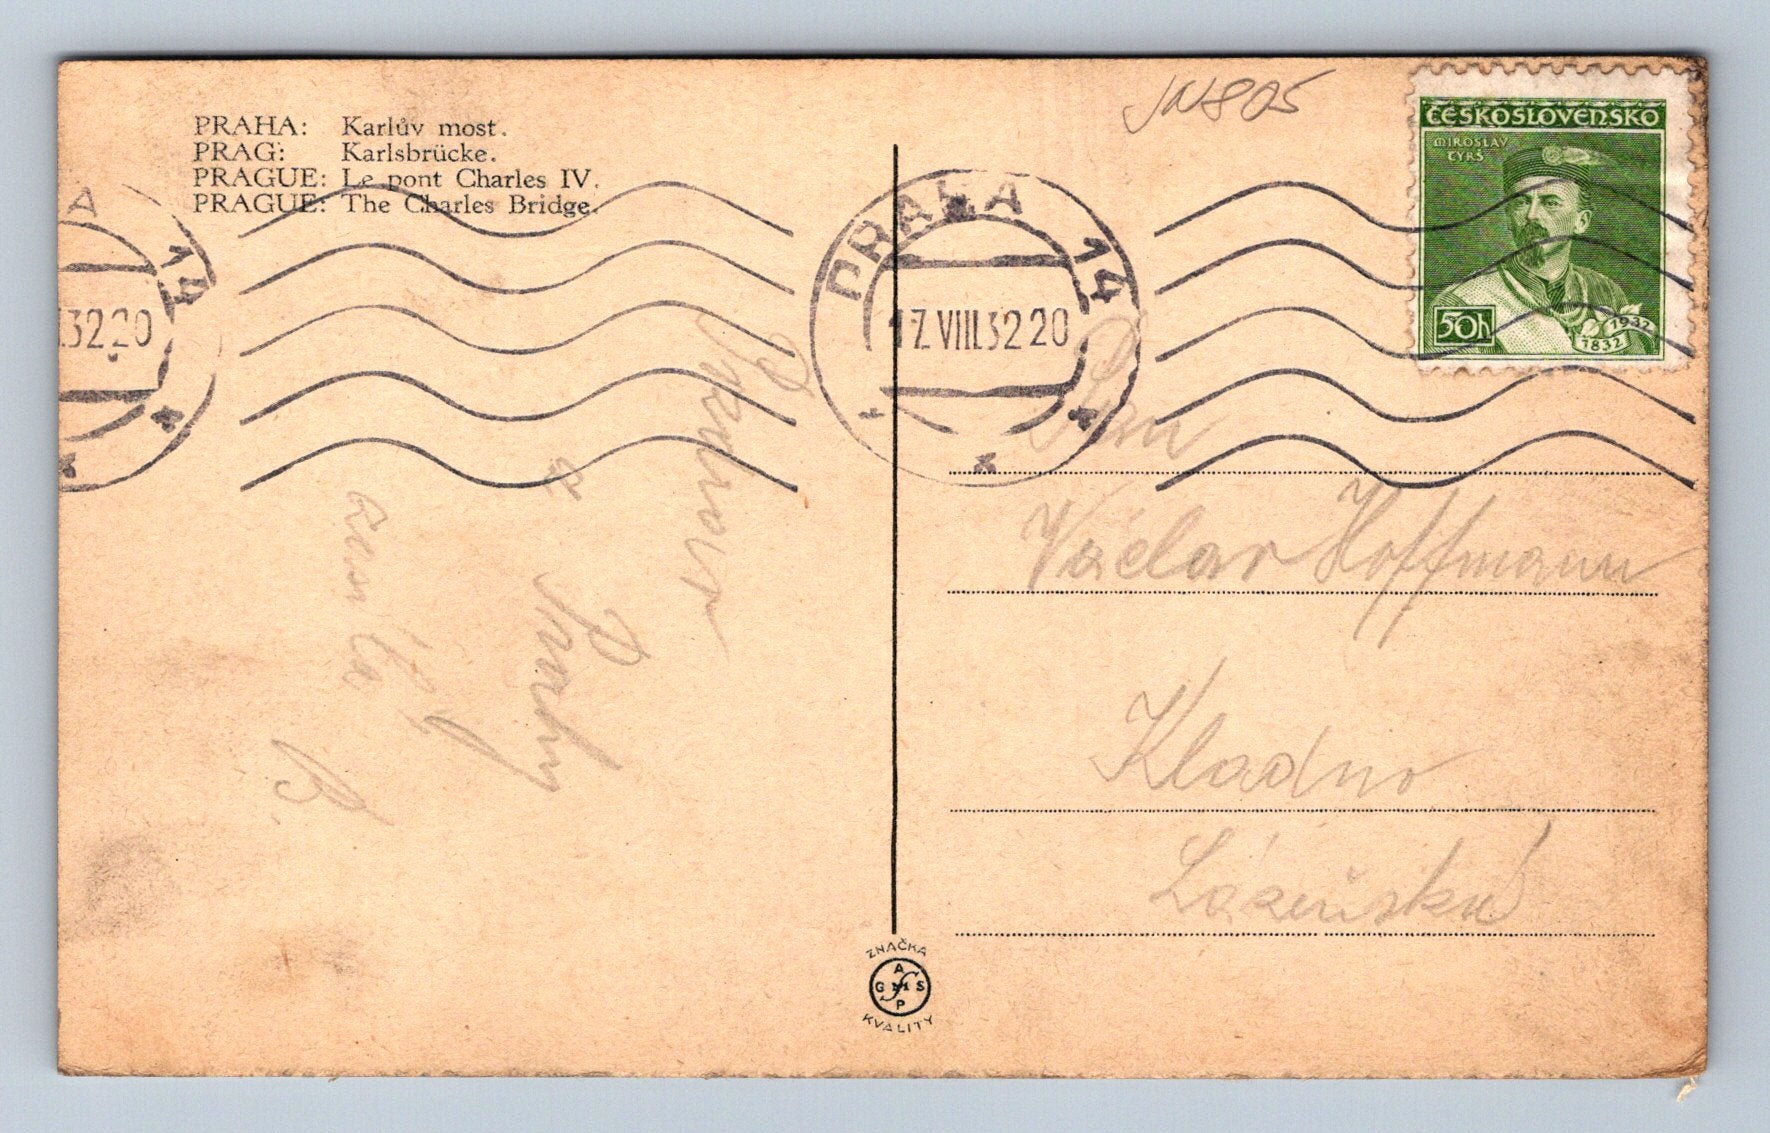 PRAHA: Karlův most.
PRAG: Karlsbrücke.
PRAGUE: Le pont Charles IV.
PRAGUE: The Charles Bridge.
A 14
.32 20
PRAHA 14
17.VIII.32 20
ČESKOSLOVENSKO
MIROSLAV
TYRŠ
50h
1932
1832
Pan
Václav Hoffmann
Kladno
Lázeňská
Pozdrav
z
Prahy
B.
ZNAČKA
A
G S
P
KVALITY